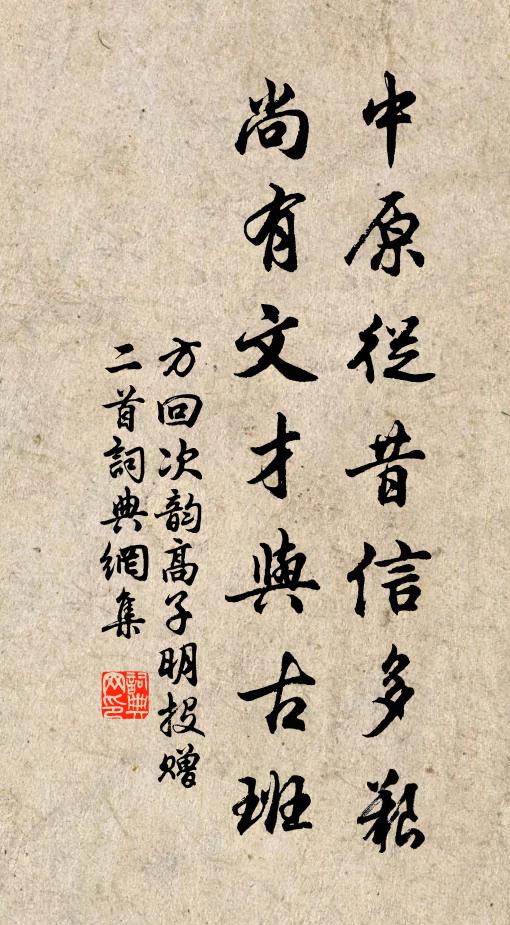 中原從昔信多艱
尚有文才與古班
方回次韵高子明投贈
二首詞典網集
詞典網印